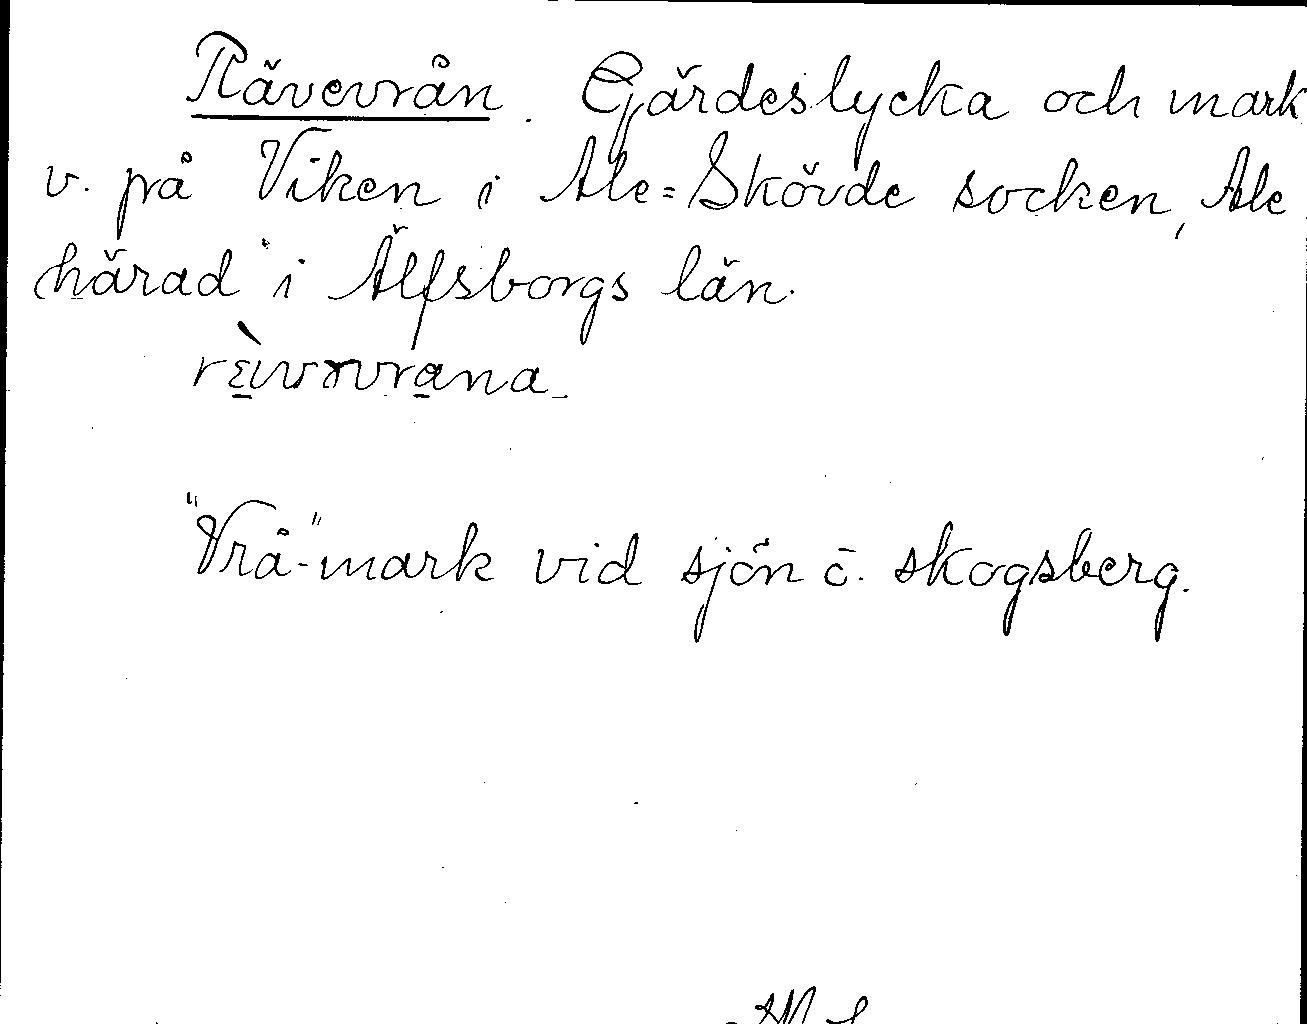 Rävevrån. Gärdeslycka och mark
v. på Viken i Ale=Skövde socken, Ale
härad i Älfsborgs län.
"Vrå"-mark vid sjön ö. skogsberg.